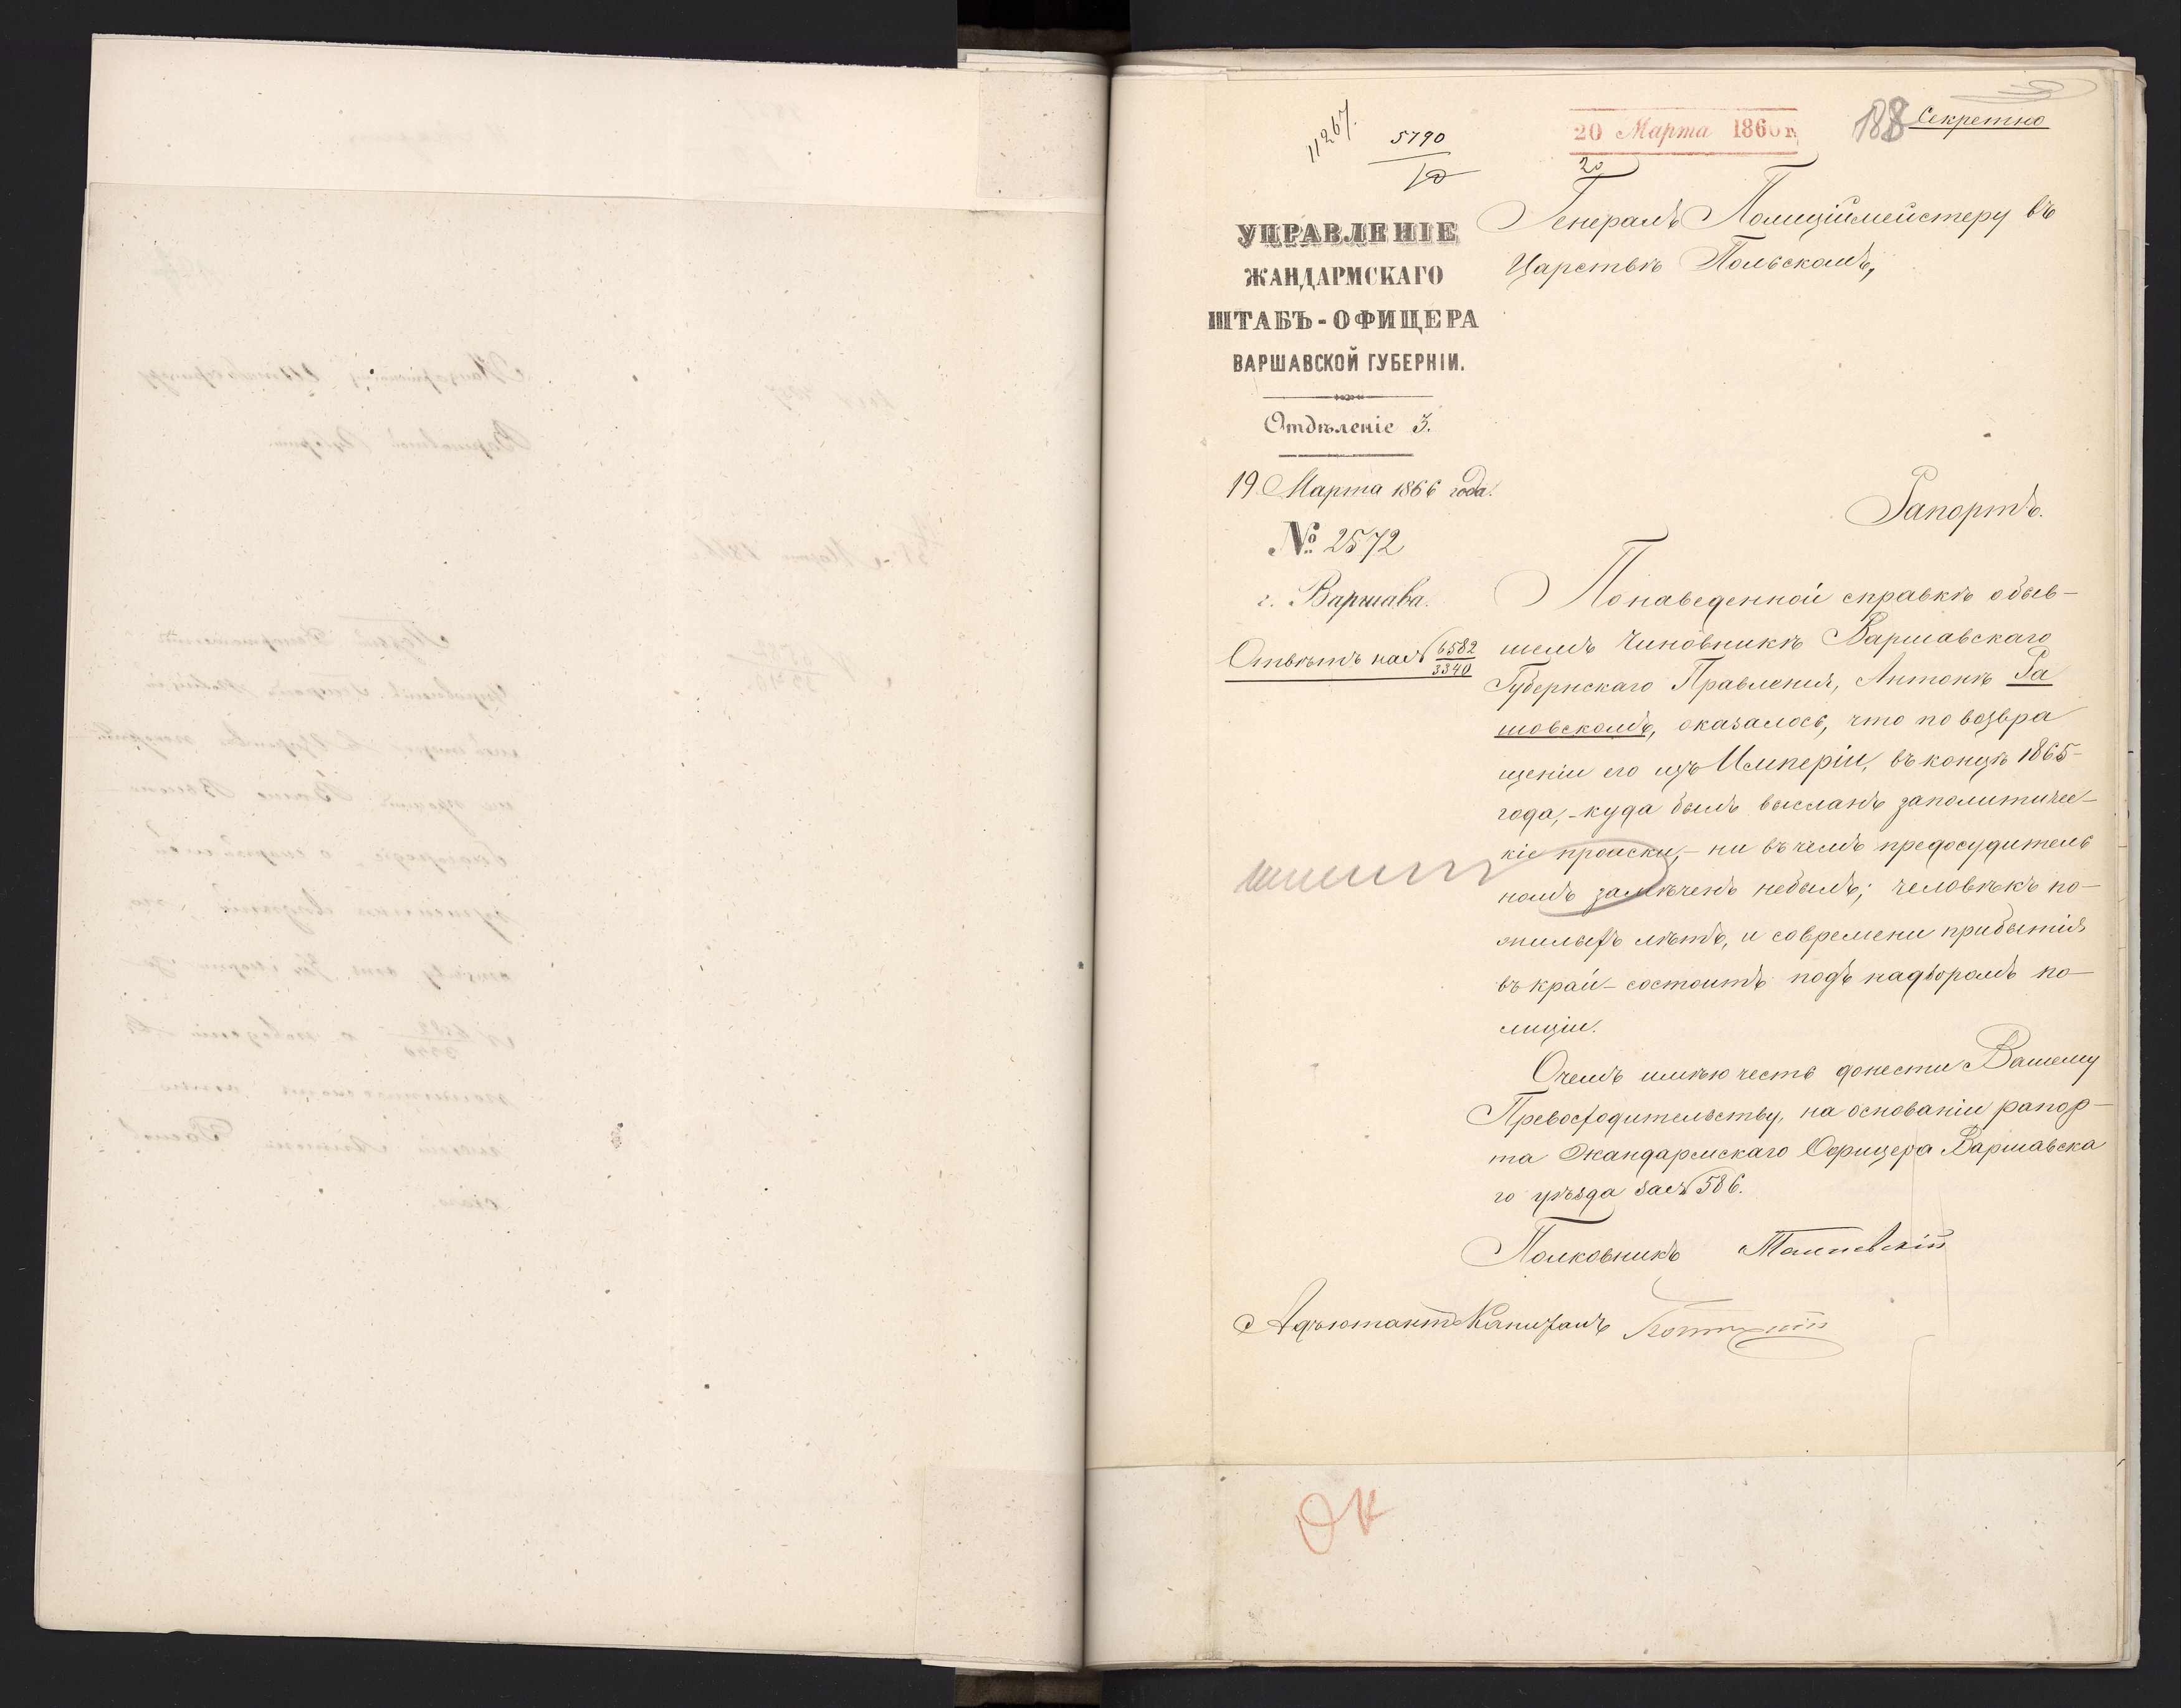 11267.
5790
10
20 Марта 1866 г.
20
188
Секретно
УПРАВЛЕНІЕ
ЖАНДАРМСКАГО
ШТАБЪ-ОФИЦЕРА
ВАРШАВСКОЙ ГУБЕРНІИ.
Отдѣленіе 3.
19 Марта 1866 года.
№ 2572
г. Варшава.
Отвѣтъ на № 6582
3340
Генералъ Полиціймейстеру въ
Царствѣ Польскомъ,
Рапортъ.
По наведенной справкѣ о быв-
шемъ чиновникѣ Варшавскаго
Губернскаго Правленія, Антонѣ Ра
шовскомъ, оказалось, что по возвра
щеніи его изъ Имперіи, въ концѣ 1865-
года, - куда былъ высланъ за политичес-
кіе происки, - ни въ чемъ предосудитель
номъ замѣченъ не былъ; человѣкъ по-
жилыхъ лѣтъ, и со времени прибытія
въ край - состоитъ подъ надзоромъ по-
лиціи.
О чемъ имѣю честь донести Вашему
Превосходительству, на основаніи рапор-
та Жандармскаго Офицера Варшавска
го уѣзда за № 586.
Полковникъ
Адъютантъ Капитанъ
ОК